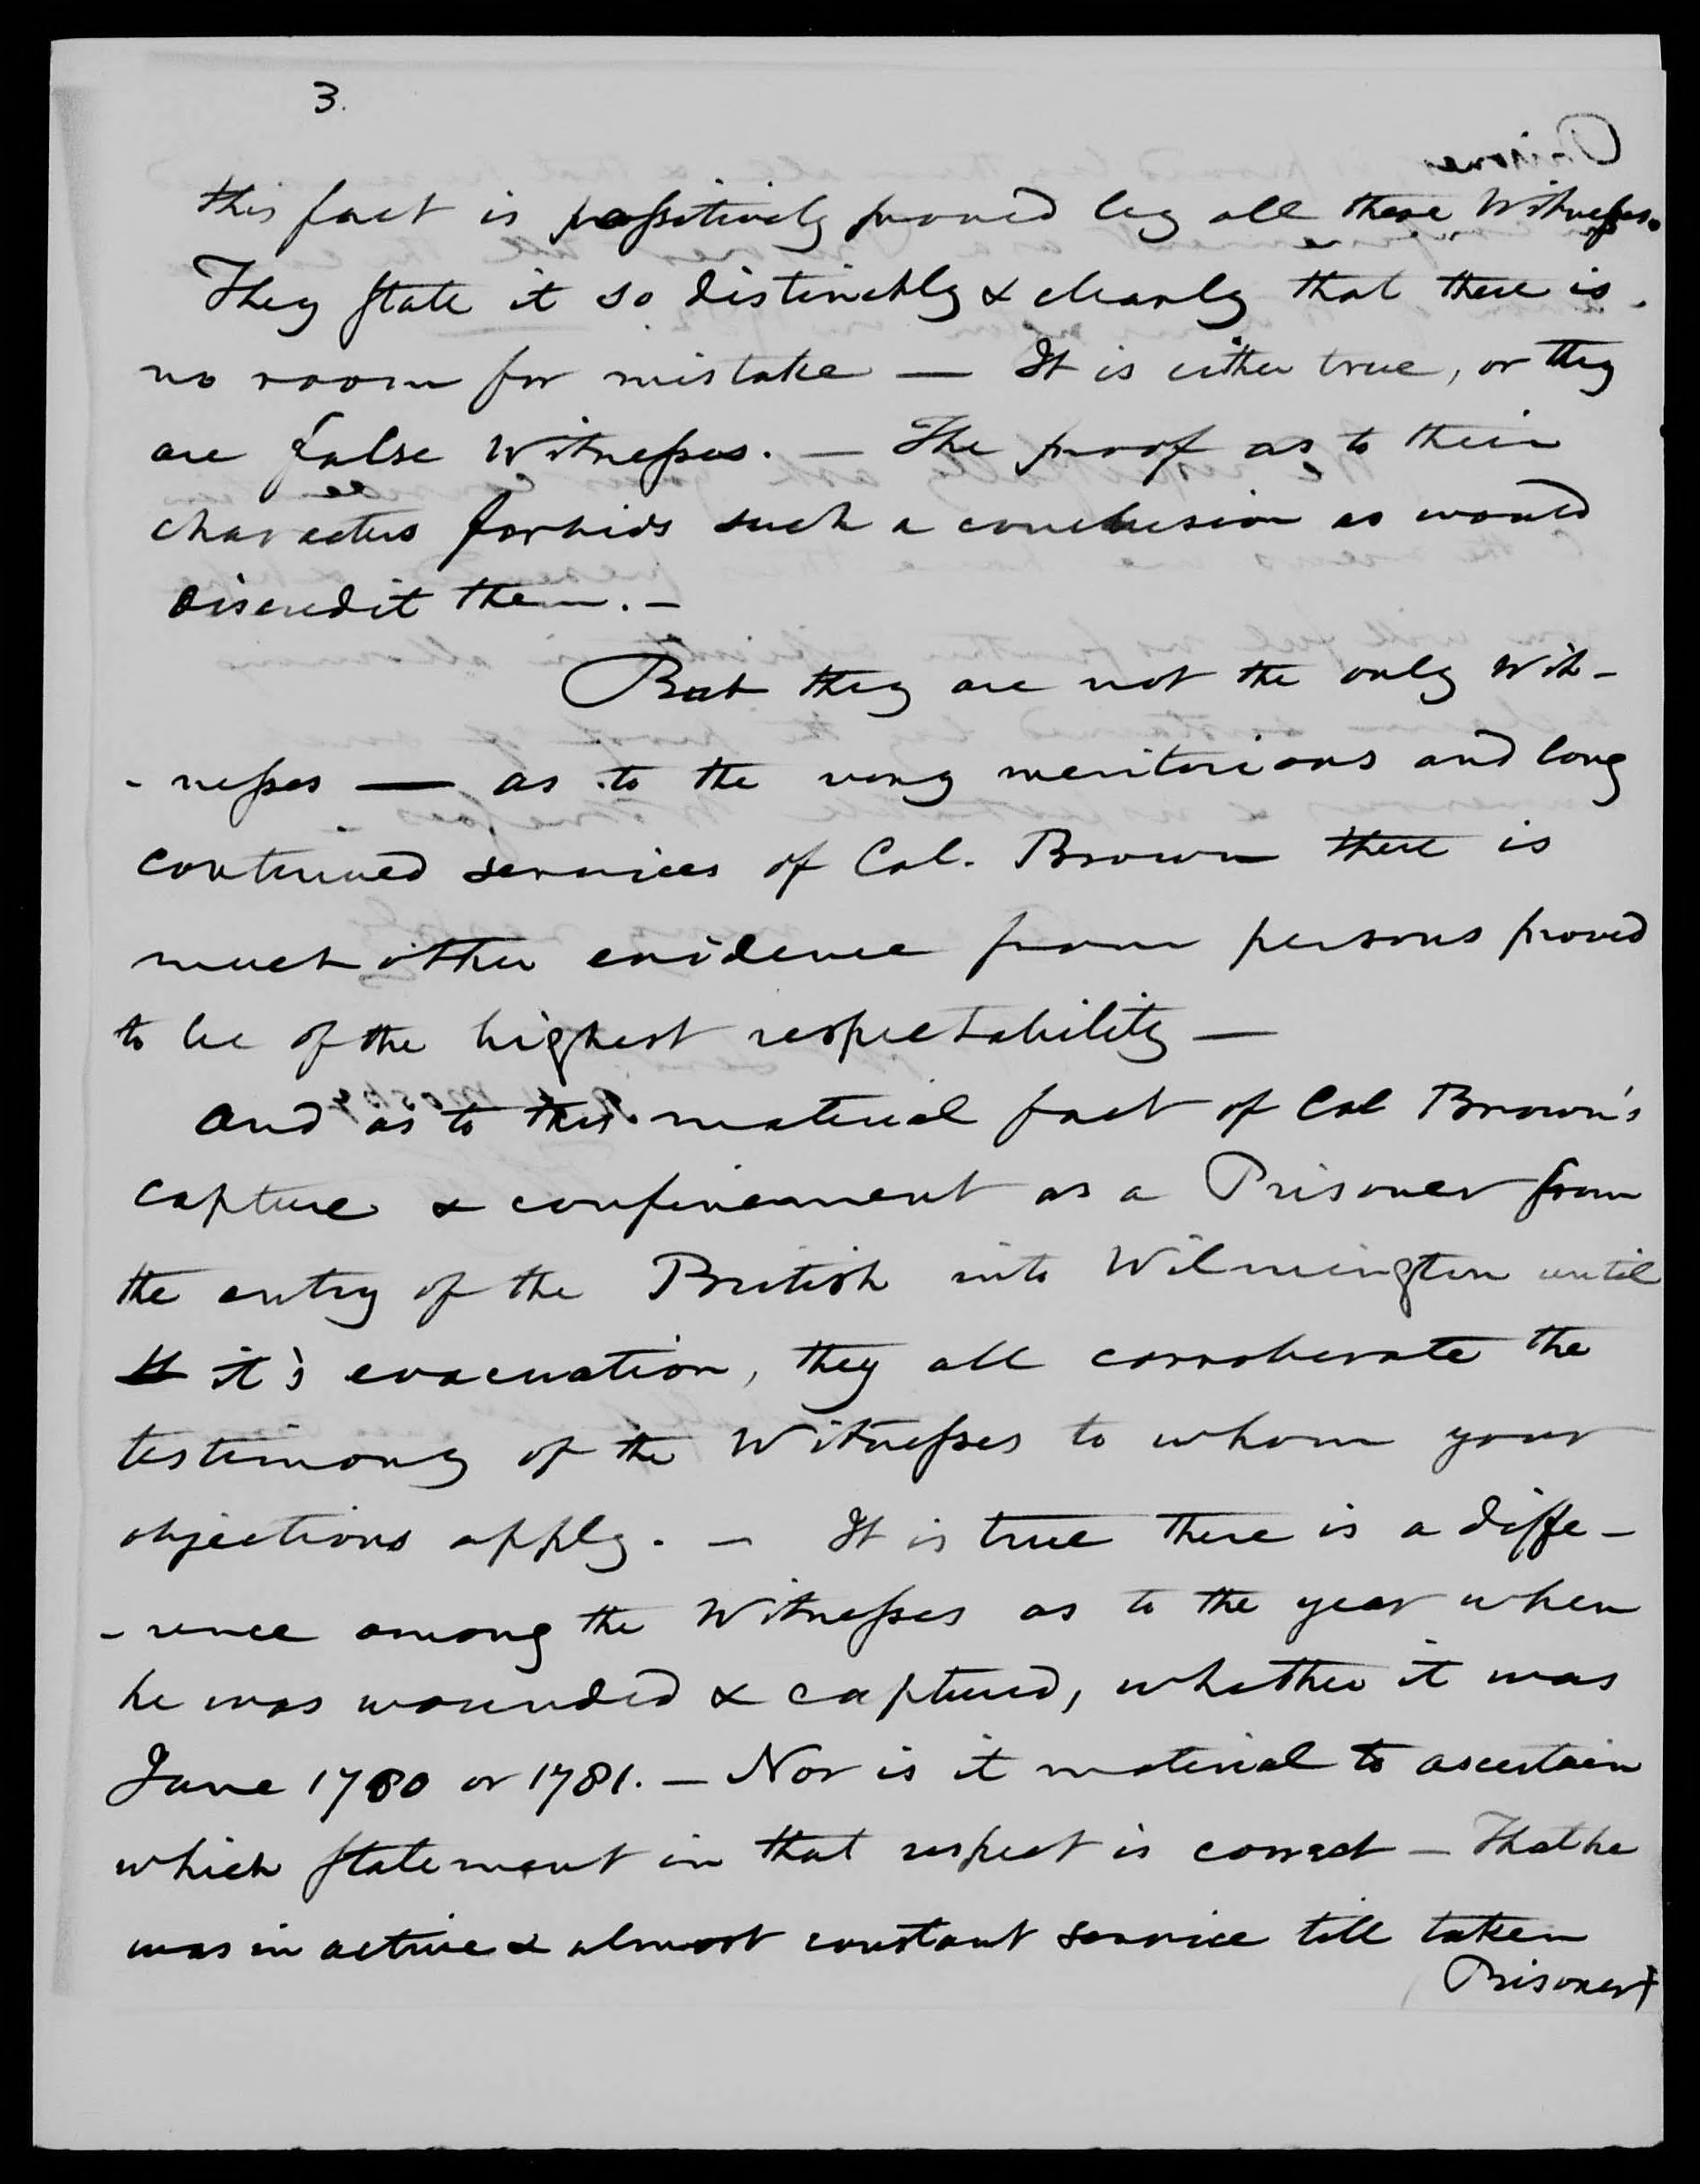 3.
this fact is possitively proved by all these Witnesses.
They state it so distinctly & clearly that there is
no room for mistake — It is either true, or they
are false Witnesses. — The proof as to their
characters forbids such a conclusion as would
discredit them. —
But they are not the only Wit-
- nesses — as to the very meritorious and long
continued services of Col. Brown there is
much other evidence from persons proved
to be of the highest respectability —
and as to this material fact of Col Brown's
capture & confinement as a Prisoner from
the entry of the British into Wilmington until
it's evacuation, they all corroberate the
testimony of the Witnesses to whom your
objections apply. — It is true there is a diffe-
- rence among the Witnesses as to the year when
he was wounded & captured, whether it was
June 1780 or 1781. — Nor is it material to ascertain
which statement in that respect is correct — That he
was in active & almost constant service till taken
Prisoner